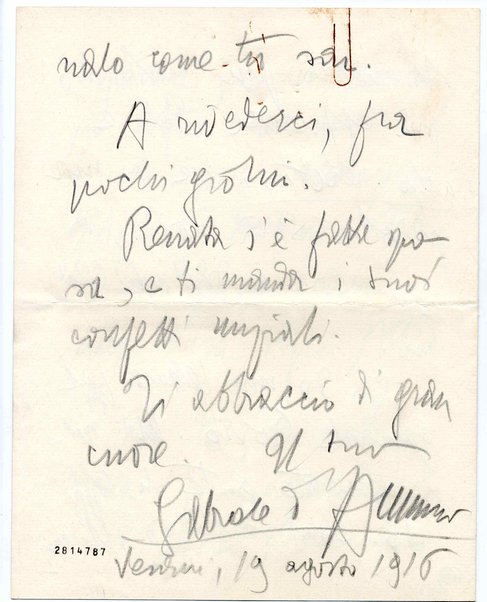 nato come tu sai.
A rivederci, fra
pochi giorni.
Renata s'è fatta spo-
sa, e ti manda i suoi
confetti nuziali.
Ti abbraccio di gran
cuore. Il tuo
Gabriele d'Annunzio
2814787
Venezia, 19 agosto 1916